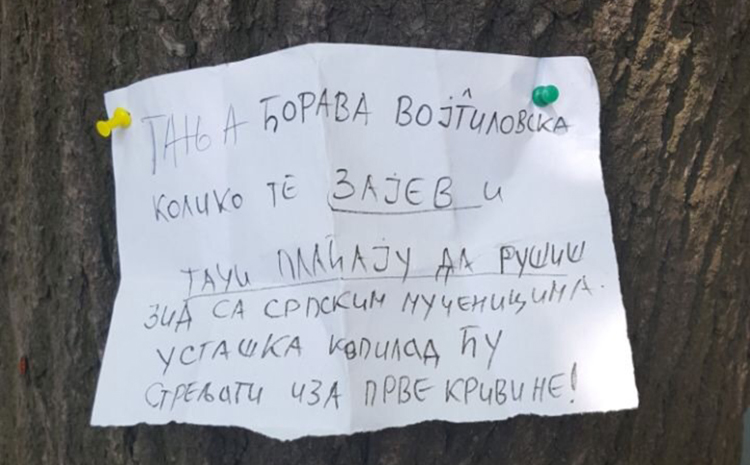 ТАЊА ЋОРАВА ВОЈТИЛОВСКА
КОЛИКО ТЕ ЗАЈЕВ И
ТАЧИ ПЛАЋАЈУ ДА РУШИШ
ЗИД СА СРПСКИМ МУЧЕНИЦИМА.
УСТАШКА КОПИЛАД ЋУ
СТРЕЉАТИ ИЗА ПРВЕ КРИВИНЕ!